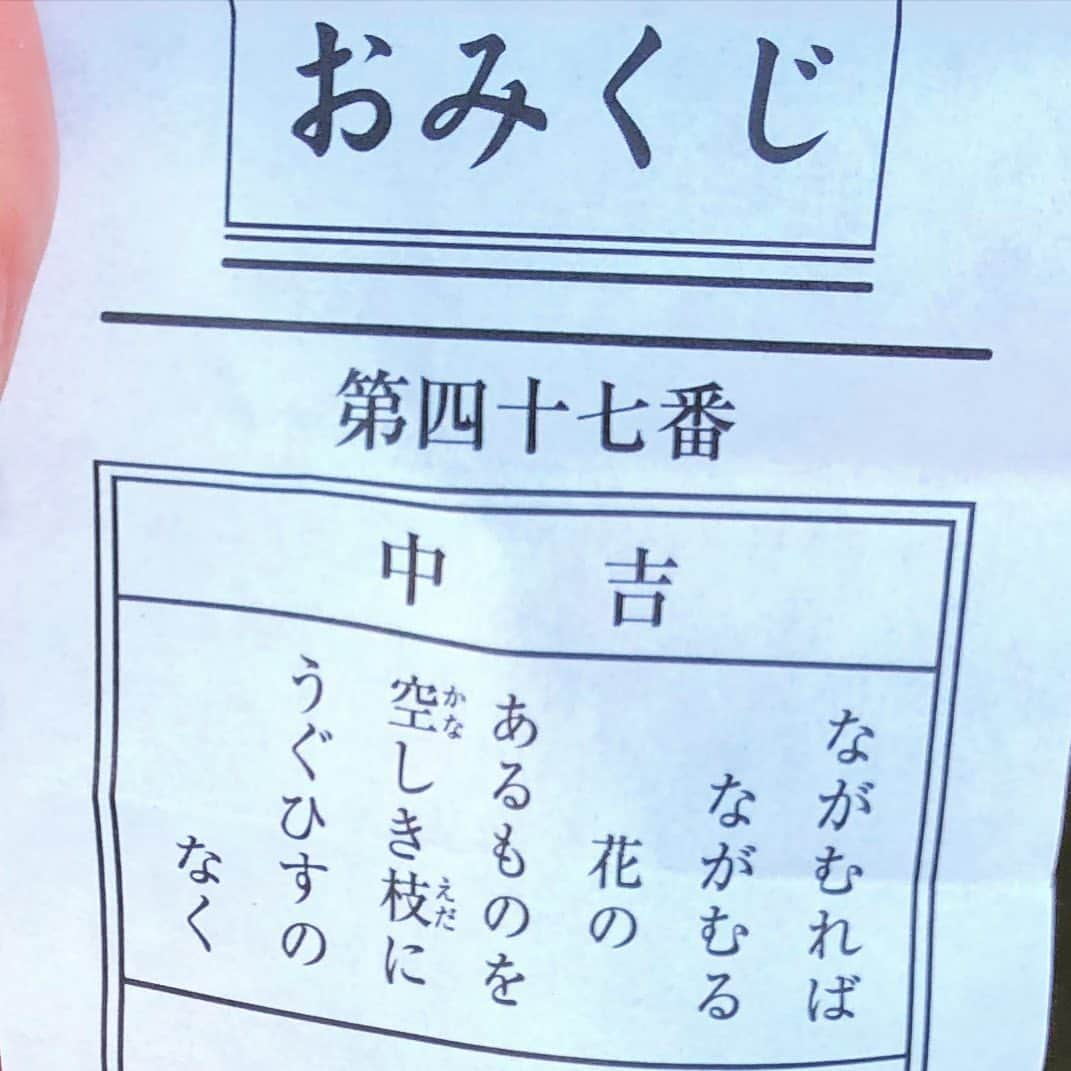 おみくじ
第四十七番
中吉
ながむれば
ながむる
花の
あるものを
空しき枝に
かな えだ
うぐひすの
なく